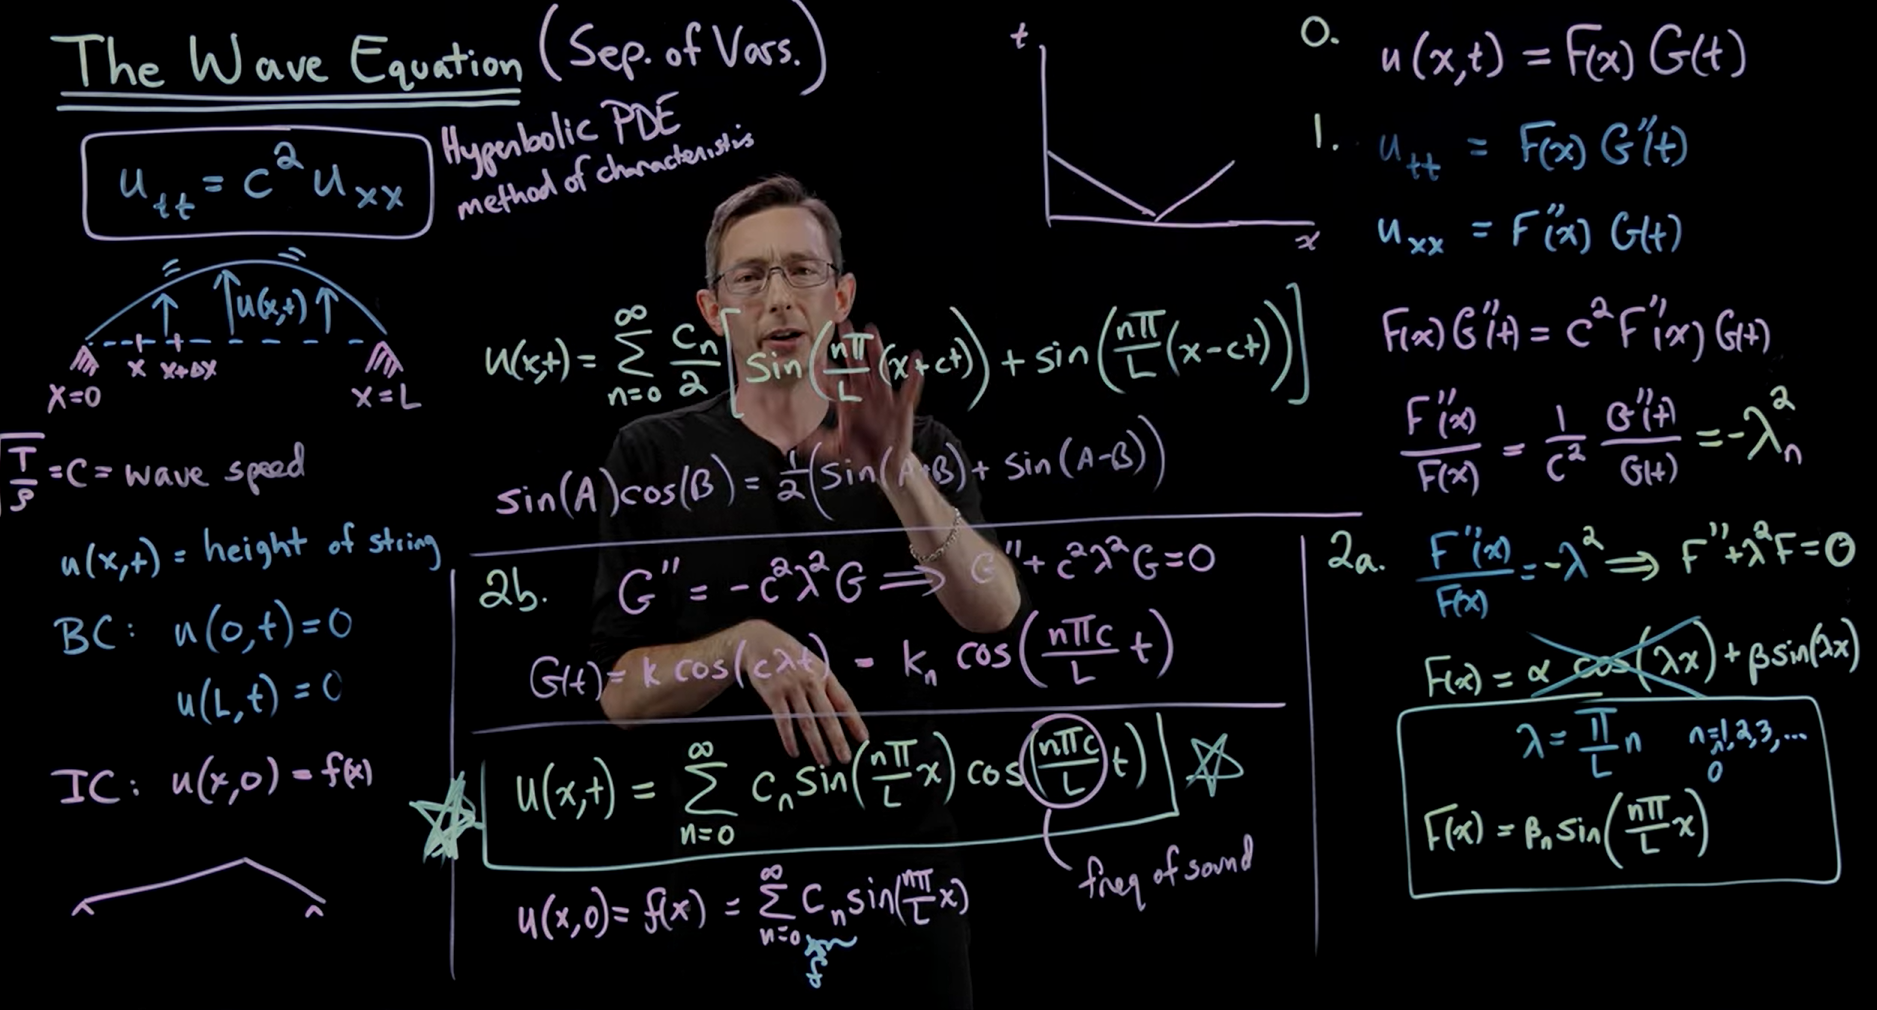 The Wave Equation (Sep. of Vars.)
u_tt = c² u_xx
Hyperbolic PDE
method of characteristics
u(x,t)
x x+Δx
x=0 x=L
√(T/ρ) = c = wave speed
u(x,t) = height of string
BC: u(0,t)=0
u(L,t)=0
IC: u(x,0) = f(x)
t
x
u(x,t) = ∑_{n=0}^{∞} C_n/2 [ sin(nπ/L (x+ct)) + sin(nπ/L (x-ct)) ]
sin(A)cos(B) = 1/2 (sin(A+B) + sin(A-B))
2b. G'' = -c²λ²G ⟹ G'' + c²λ²G=0
G(t) = k cos(cλt) = k_n cos(nπc/L t)
u(x,t) = ∑_{n=0}^{∞} C_n sin(nπ/L x) cos(nπc/L t)
freq of sound
u(x,0) = f(x) = ∑_{n=0}^{∞} C_n sin(nπ/L x)
0. u(x,t) = F(x) G(t)
1. u_tt = F(x) G''(t)
u_xx = F''(x) G(t)
F(x) G''(t) = c² F''(x) G(t)
F''(x)/F(x) = 1/c² G''(t)/G(t) = -λ_n²
2a. F''(x)/F(x) = -λ² ⟹ F''+λ²F=0
F(x) = α cos(λx) + β sin(λx)
λ = π/L n n=1,2,3,...
0
F(x) = β_n sin(nπ/L x)